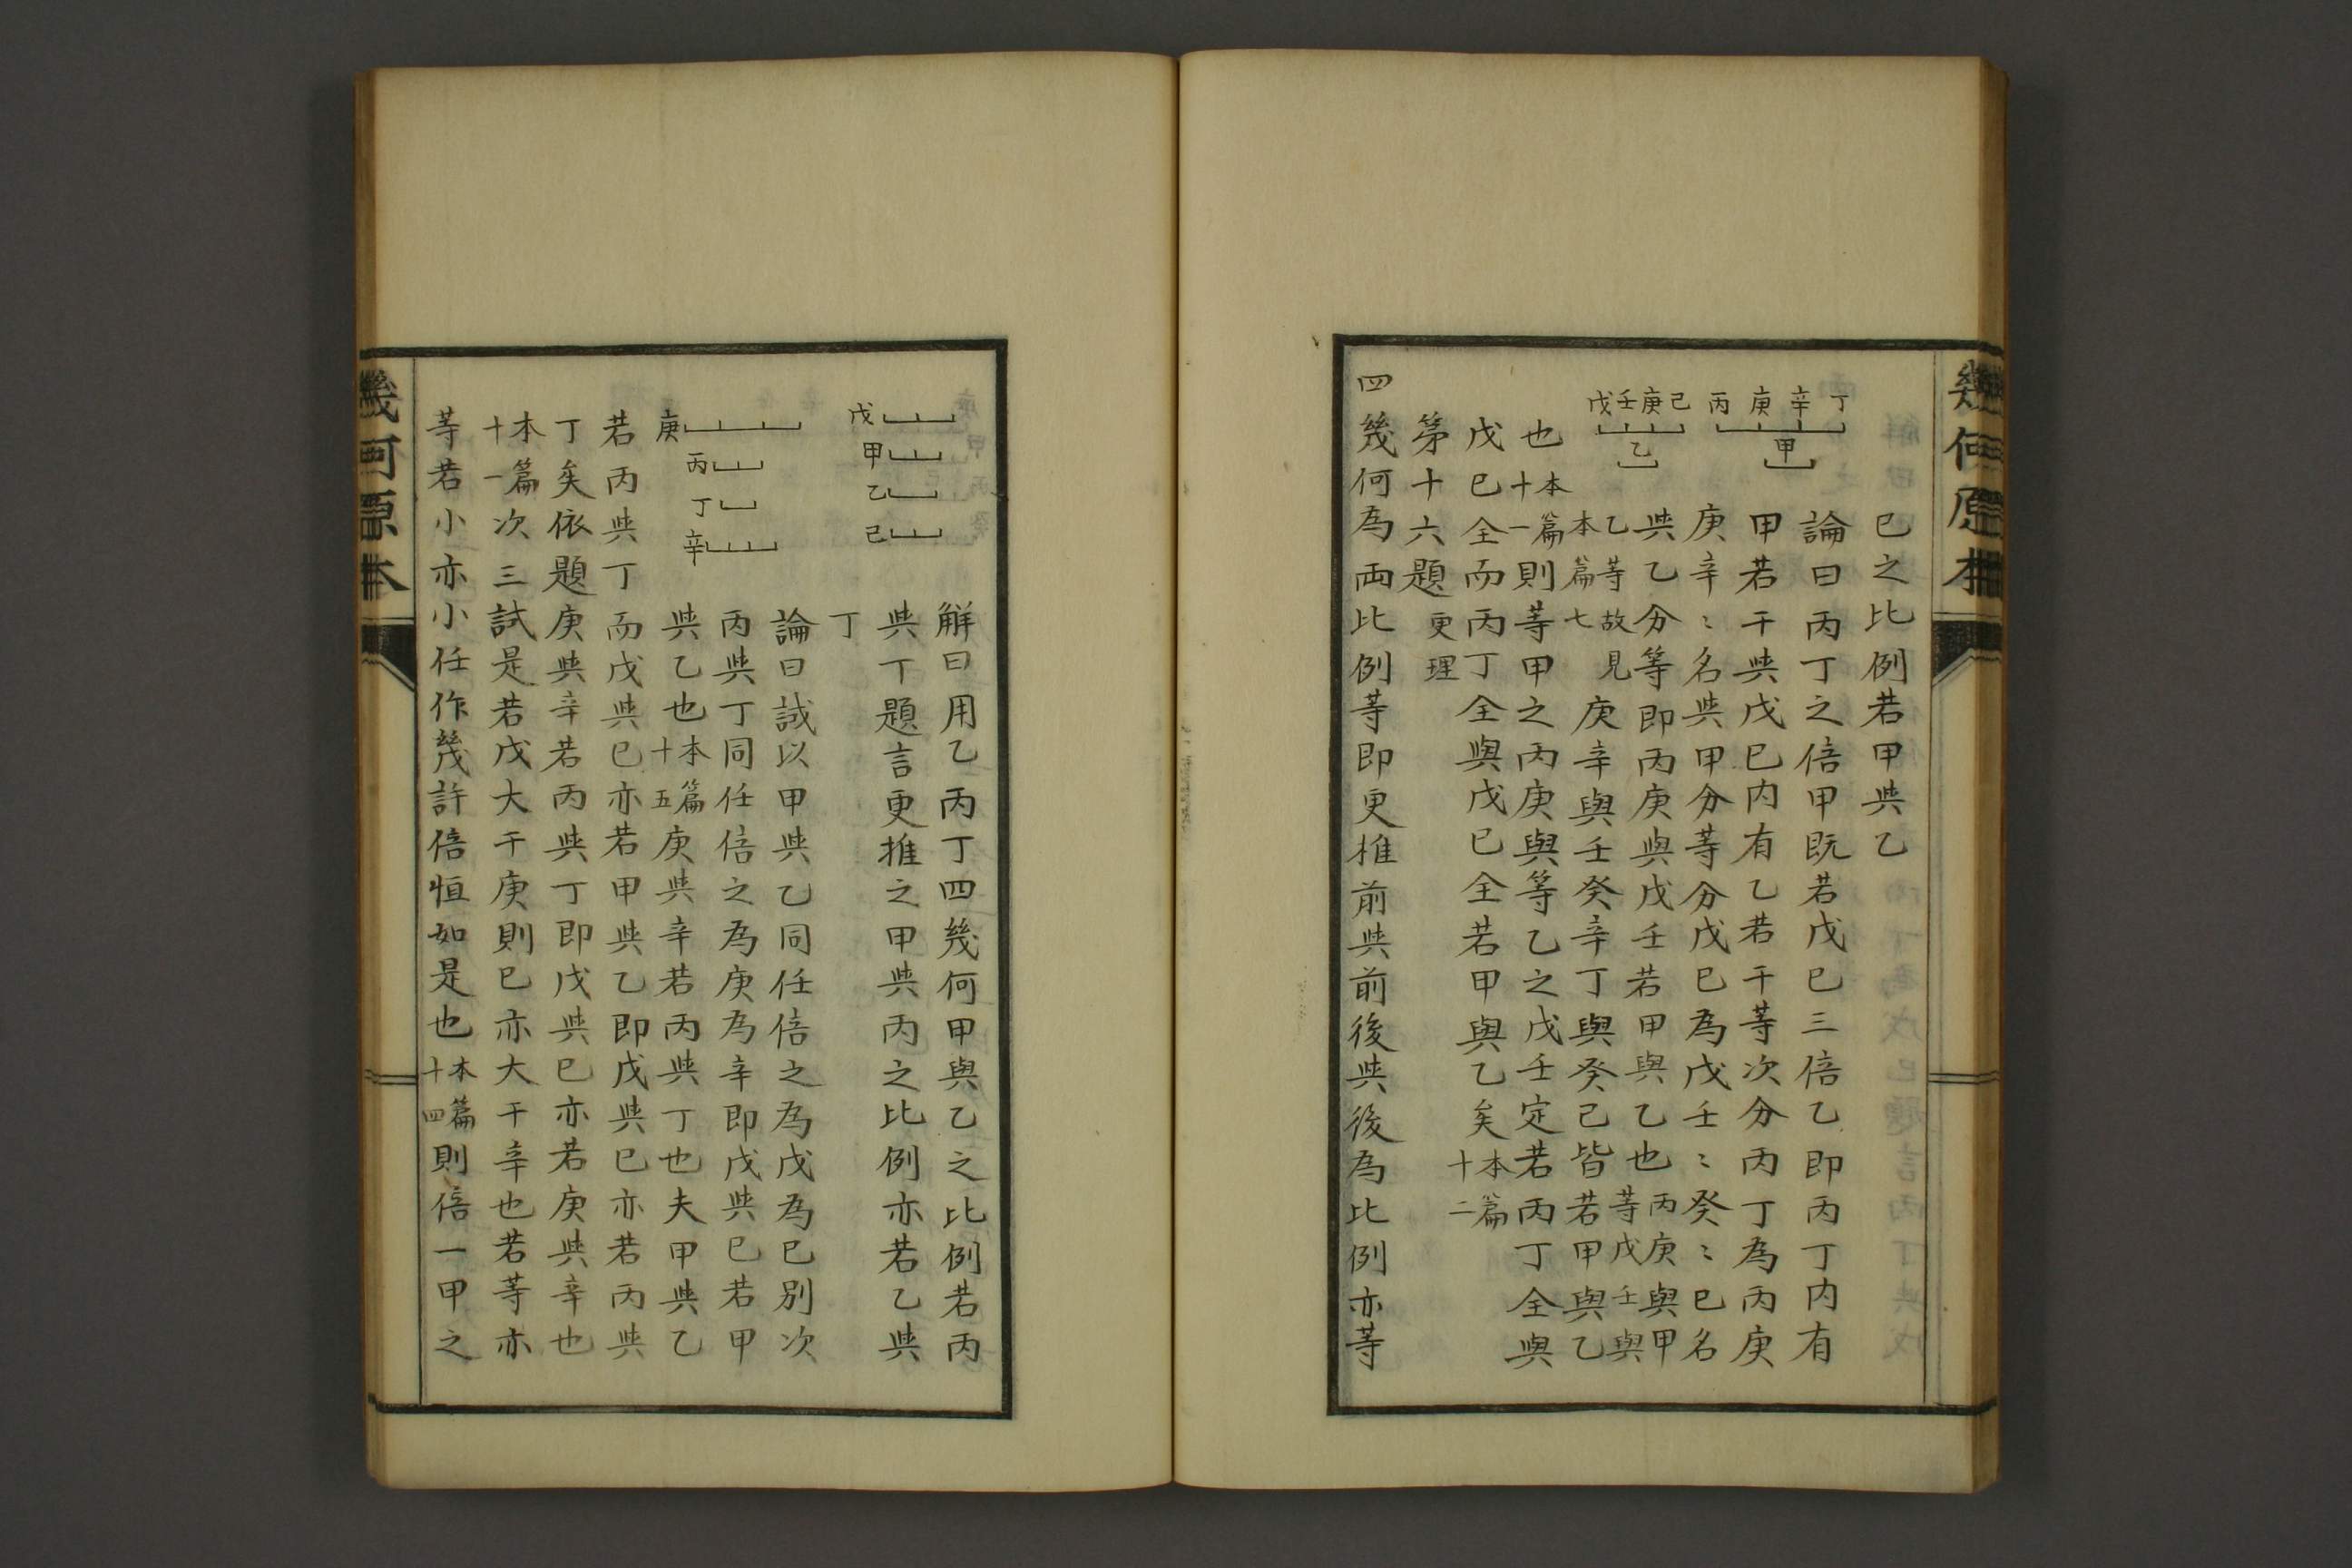 幾何原本
丙庚辛丁
甲
戊壬庚己
乙
巳之比例若甲與乙
論曰丙丁之倍甲既若戊巳三倍乙即丙丁内有
甲若干與戊巳内有乙若干等次分丙丁為丙庚
庚辛〻名與甲分等分戊巳為戊壬〻癸〻巳名
與乙分等即丙庚與戊壬若甲與乙也丙庚與甲等戊壬與
乙等故見本篇七庚辛與壬癸辛丁與癸己皆若甲與乙
也本篇十一則等甲之丙庚與等乙之戊壬定若丙丁全與
戊巳全而丙丁全與戊巳全若甲與乙矣本篇十二
第十六題更理
四幾何為両比例等即更推前與前後與後為比例亦等
戊
甲
乙
己
解曰用乙丙丁四幾何甲與乙之比例若丙
與丁題言更推之甲與丙之比例亦若乙與
丁
論曰試以甲與乙同任倍之為戊為巳別次
丙與丁同任倍之為庚為辛即戊與巳若甲
庚
丙
丁
辛
與乙也本篇十五庚與辛若丙與丁也夫甲與乙
若丙與丁而戊與巳亦若甲與乙即戊與巳亦若丙與
丁矣依題庚與辛若丙與丁即戊與巳亦若庚與辛也
本篇十一次三試是若戊大于庚則巳亦大于辛也若等亦
等若小亦小任作幾許倍恒如是也本篇十四則倍一甲之
幾何原本